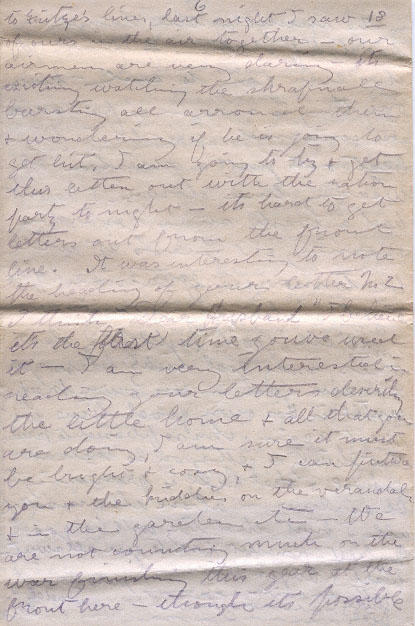 6
to Fritz's lines, last night I saw 13
of ours in the air together – our
airmen are very daring its
exciting watching the shrapnell
bursting all arround them
& wondering if he is going to
get hit, I am going to try & get
this letter out with the ration
party to night – its hard to get
letters out from the front
line. It was interesting to note
the heading of your letter No 2
I think "Dear Husband"
its the first time you've used
it – I am very interested in
reading your letters describing
the little home & all that you
are doing, I am sure it must
be bright & cosy, & I can picture
you & the kiddies on the verandah
& in the garden etc – We
are not counting much on the
war finishing this year at the
front here – though its possible